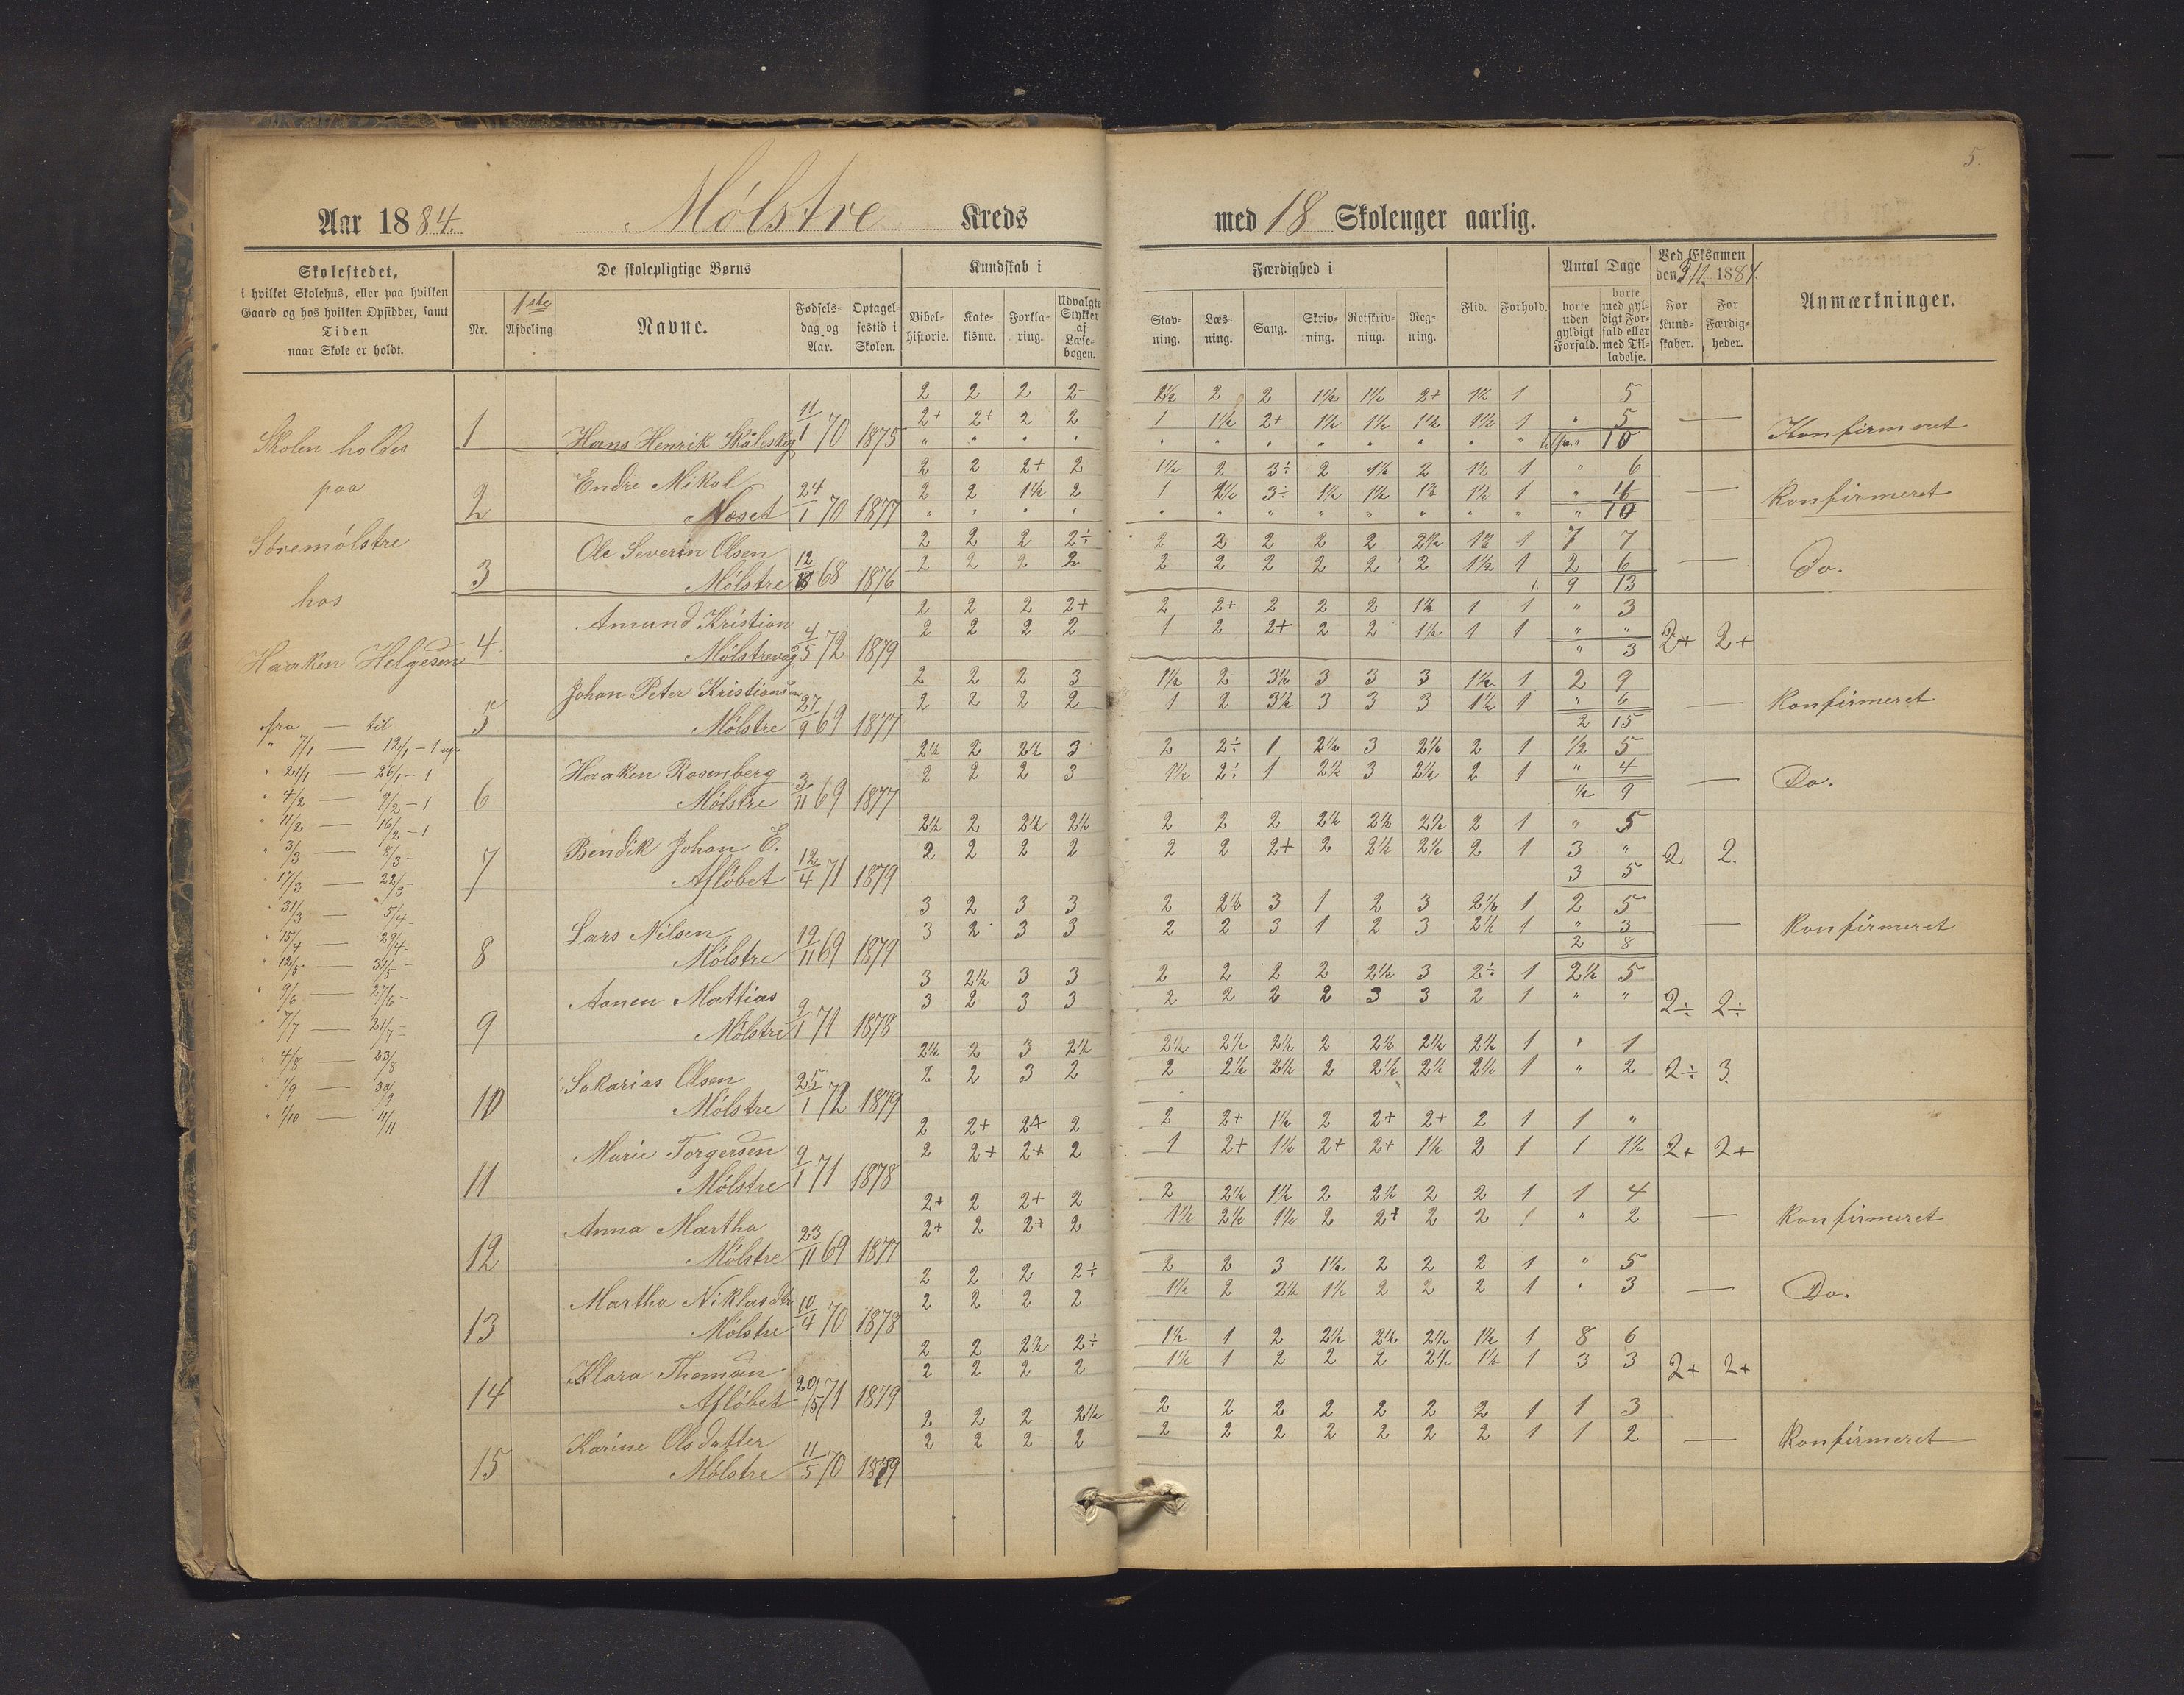 5.
Aar 1884. Mólstre Kreds med 18 Skolenger aarlig.
Skolestedet, i hvilket Skolehus, eller paa hvilken Gaard og hos hvilken Opsidder, samt Tiden naar Skole er holdt.
De skolepligtige Børns
Nr. 1ste Afdeling Navne. Fødsels-dag og Aar. Optagel-sestid i Skolen.
Kundskab i
Bibel-historie. Kate-kisme. Forkla-ring. Udvalgte Stykker af Læse-bogen.
Færdighed i
Stav-ning. Læs-ning. Sang. Skriv-ning. Retskriv-ning. Reg-ning.
Flid. Forhold.
Antal Dage
borte uden gyldigt Forfald. borte med gyl-digt For-fald eller med Til-ladelse.
Ved Eksamen den 1884.
For Kund-skaber. For Færdig-heder.
Anmærkninger.
Skolen holdes
paa
Störemólstre
hos
Haaken Helgesen
fra — til
" 7/1 — 12/1 - 1 ug.
" 21/1 — 26/1 - 1
" 4/2 — 9/2 - 1
" 11/2 — 16/2 - 1
" 3/3 — 8/3 -
" 17/3 — 22/3 -
" 31/3 — 5/4 -
" 15/4 — 29/4 -
" 12/5 — 31/5 -
" 9/6 — 27/6 -
" 7/7 — 21/7 -
" 4/8 — 23/8
" 1/9 — 30/9
" 1/10 — 11/11
2 2 2 2- 2½ 2 2 1½ 1½ 2+ 1½ 1 5
1 Hans Henrik Skåleskog 11/1 70 1875 2+ 2+ 2 2 1 1½ 2+ 1½ 1½ 1½ 1½ 1 " 5 — Konfirmeret
" " " " " " " " " " " " " 10
2 2 2+ 2 1½ 2 3÷ 2 1½ 2 1½ 1 " 6
2 Endre Mikal Næset 24/1 70 1877 2 2 1½ 2 1 2½ 3÷ 1½ 1½ 1½ 1½ 1 " 4 — Konfirmeret
" " " " " " " " " " " " " 10
2 2 2 2÷ 2 2 2 2 2 2½ 1½ 1 7 7
3 Ole Severin Olsen Mólstre 12/ 68 1876 2 2 2 2 2 2 2 2 2 2 1½ 1 2 6 — Do.
9 13
2 2 2 2+ 2 2+ 2 2 2 1½ 1 1 " 3
4 Amund Kristian Mólstrevåg 4/5 72 1879 2 2 2 2 1 2 2+ 2 2 1½ 1 1 " " 2+ 2+
" 3
2 2 2 3 1½ 2 3½ 3 3 3 1½ 1 2 9
5 Johan Peter Kristiansen Mólstre 27/9 69 1877 2 2 2 2 1 2 3½ 3 3 3 1½ 1 " 6 — Konfirmeret
2 15
2½ 2 2½ 3 2 2÷ 1 2½ 3 2½ 2 1 ½ 5
6 Haaken Rosenberg Mólstre 3/11 69 1877 2 2 2 3 1½ 2÷ 1 2½ 3 2½ 2 1 " 4 — Do.
½ 9
2½ 2 2½ 2½ 2 2 2 2½ 2½ 2½ 2 1 " 5
7 Bendik Johan E. Aflóbet 12/4 71 1879 2 2 2 2 2 2 2+ 2 2½ 2½ 2 1 3 " 2 2.
3 5
3 2 3 3 2 2½ 3 1 2 3 2½ 1 2 5
8 Lars Nilsen Mólstre 12/11 69 1879 3 2 3 3 2 2 3 1 2 3 2½ 1 " 3 — Konfirmeret
2 8
3 2½ 3 3 2 2 2 2 2½ 3 2÷ 1 2½ 5
9 Aanen Mattias Mólstre 9/1 71 1878 3 2 3 3 2 2 2 2 3 3 2 1 " " 2÷ 2÷
2½ 2 3 2½ 2½ 2½ 2½ 2 2½ 2½ 2½ 1 " 1
10 Sakarias Olsen Mólstre 25/1 72 1879 2 2 3 2 2 2½ 2½ 2 2½ 2½ 2½ 1 " 2 2÷ 3.
2 2+ 2+ 2 2 2+ 1½ 2 2+ 2+ 2 1 1 "
11 Marie Torgersen Mólstre 9/1 71 1878 2 2+ 2+ 2 1 2+ 1½ 2+ 2+ 1½ 2 1 1 1½ 2+ 2+
2+ 2 2+ 2 2 2½ 1½ 2 2½ 2 2 1 1 4
12 Anna Martha Mólstre 23/11 69 1877 2+ 2 2+ 2 1½ 2½ 1½ 2 2+ 2 2 1 " 2 — Konfirmeret
2 2 2 2÷ 2 2 3 1½ 2 2 2 1 " 5
13 Martha Niklasdtr Mólstre 10/4 70 1878 2 2 2 2 1½ 2 2½ 1½ 2 2 2 1 " 3 — Do.
2 2 2½ 2÷ 1½ 1 2 2½ 2½ 2½ 1½ 1 8 6
14 Klara Thomsen Aflóbet 20/5 71 1879 2 2 2 2 1½ 1 2 2 2 2½ 1½ 1 3 3 2+ 2+
2 2 2 2½ 2 2 2 2 2 2 2 1 1 3
15 Karine Olsdatter Mólstre 11/5 70 1879 2 2 2 2 2 2 2 2 2 2 2 1 1 2 — Konfirmeret